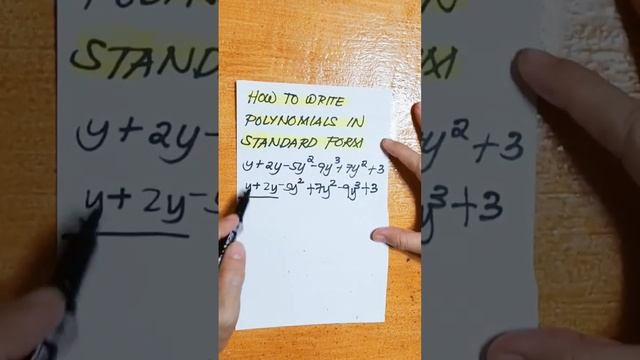 HOW TO WRITE
POLYNOMIALS IN
STANDARD FORM
y+2y-5y²-9y³+7y²+3
y+2y-5y²+7y²-9y³+3